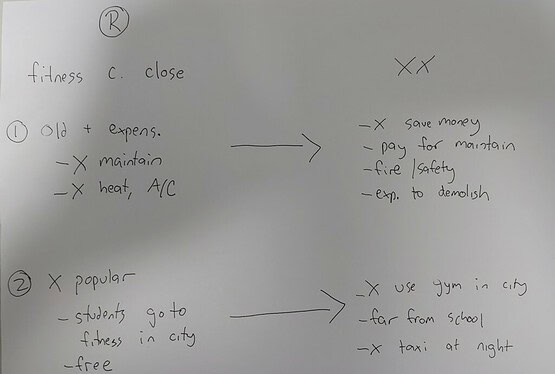 R
fitness c. close
XX
① Old + expens.
- X maintain
- X heat, A/C
- X save money
- pay for maintain
- fire/safety
- exp. to demolish
② X popular
- students go to
fitness in city
- free
- X use gym in city
- far from school
- X taxi at night